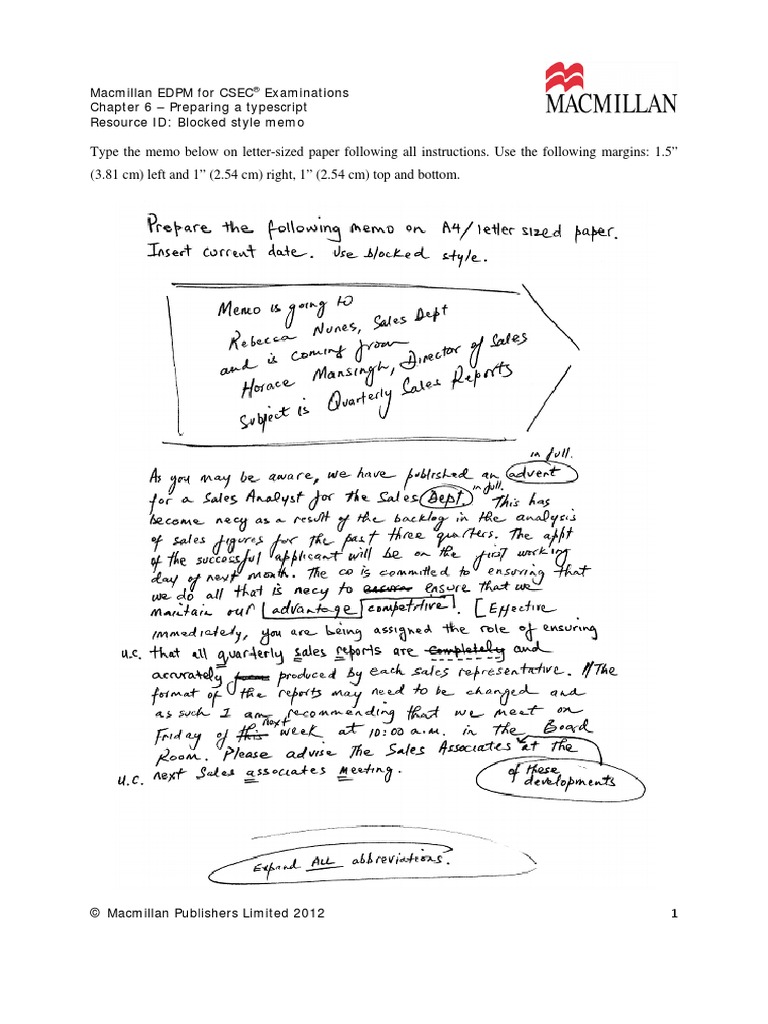 Macmillan EDPM for CSEC® Examinations
Chapter 6 – Preparing a typescript
Resource ID: Blocked style memo
MACMILLAN
Type the memo below on letter-sized paper following all instructions. Use the following margins: 1.5”
(3.81 cm) left and 1” (2.54 cm) right, 1” (2.54 cm) top and bottom.
Prepare the following memo on A4/letter sized paper.
Insert current date. Use blocked style.
Memo is going to
Rebecca Nunes, Sales Dept
and is coming from
Horace Mansingh, Director of Sales
Subject is Quarterly Sales Reports
in full.
As you may be aware, we have published an advent
in full.
for a Sales Analyst for the Sales Dept. This has
become necy as a result of the backlog in the analysis
of sales figures for the past three quarters. The appt
of the successful applicant will be on the first working
day of next month. The co is committed to ensuring that
we do all that is necy to ensure ensure that we
maintain our advantage competitive. [Effective
immediately, you are being assigned the role of ensuring
u.c. that all quarterly sales reports are completely and
accurately produced by each sales representative. // The
format of the reports may need to be changed and
as such I am recommending that we meet on
next
Friday of this week at 10:00 a.m. in the Board
Room. Please advise the Sales Associates at the
u.c. next Sales associates meeting.
of these
developments
Expand ALL abbreviations.
© Macmillan Publishers Limited 2012
1